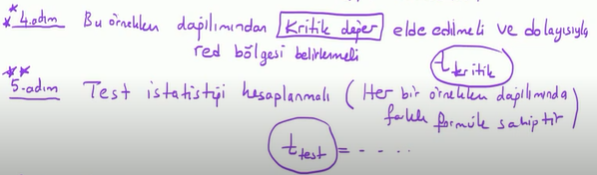 ** 4.adım Bu örneklem dağılımından Kritik değer elde edilmeli ve dolayısıyla
red bölgesi belirlemeli
t kritik
** 5.adım Test istatistiği hesaplanmalı (Her bir örneklem dağılımında
farklı formüle sahiptir)
t test = - - - -